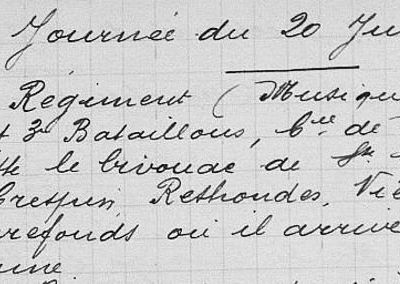 Journée du 20 Ju
Régiment (Musiqu
t 3e Bataillons, Cie de
le bivouac de
Crespin, Rethondes, Vie
refonds où il arrive